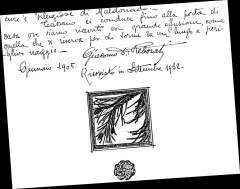 cure è religiosa di Maldonado —
Teatano ci conduce fino alla porta di
casa ove siamo ricevuti con grande effusione, come
quella che si riserva per chi torna da un lungo e peri-
glioso viaggio —
Giacomo De
Gennaio 1905. Ricopiato in Settembre 1932.